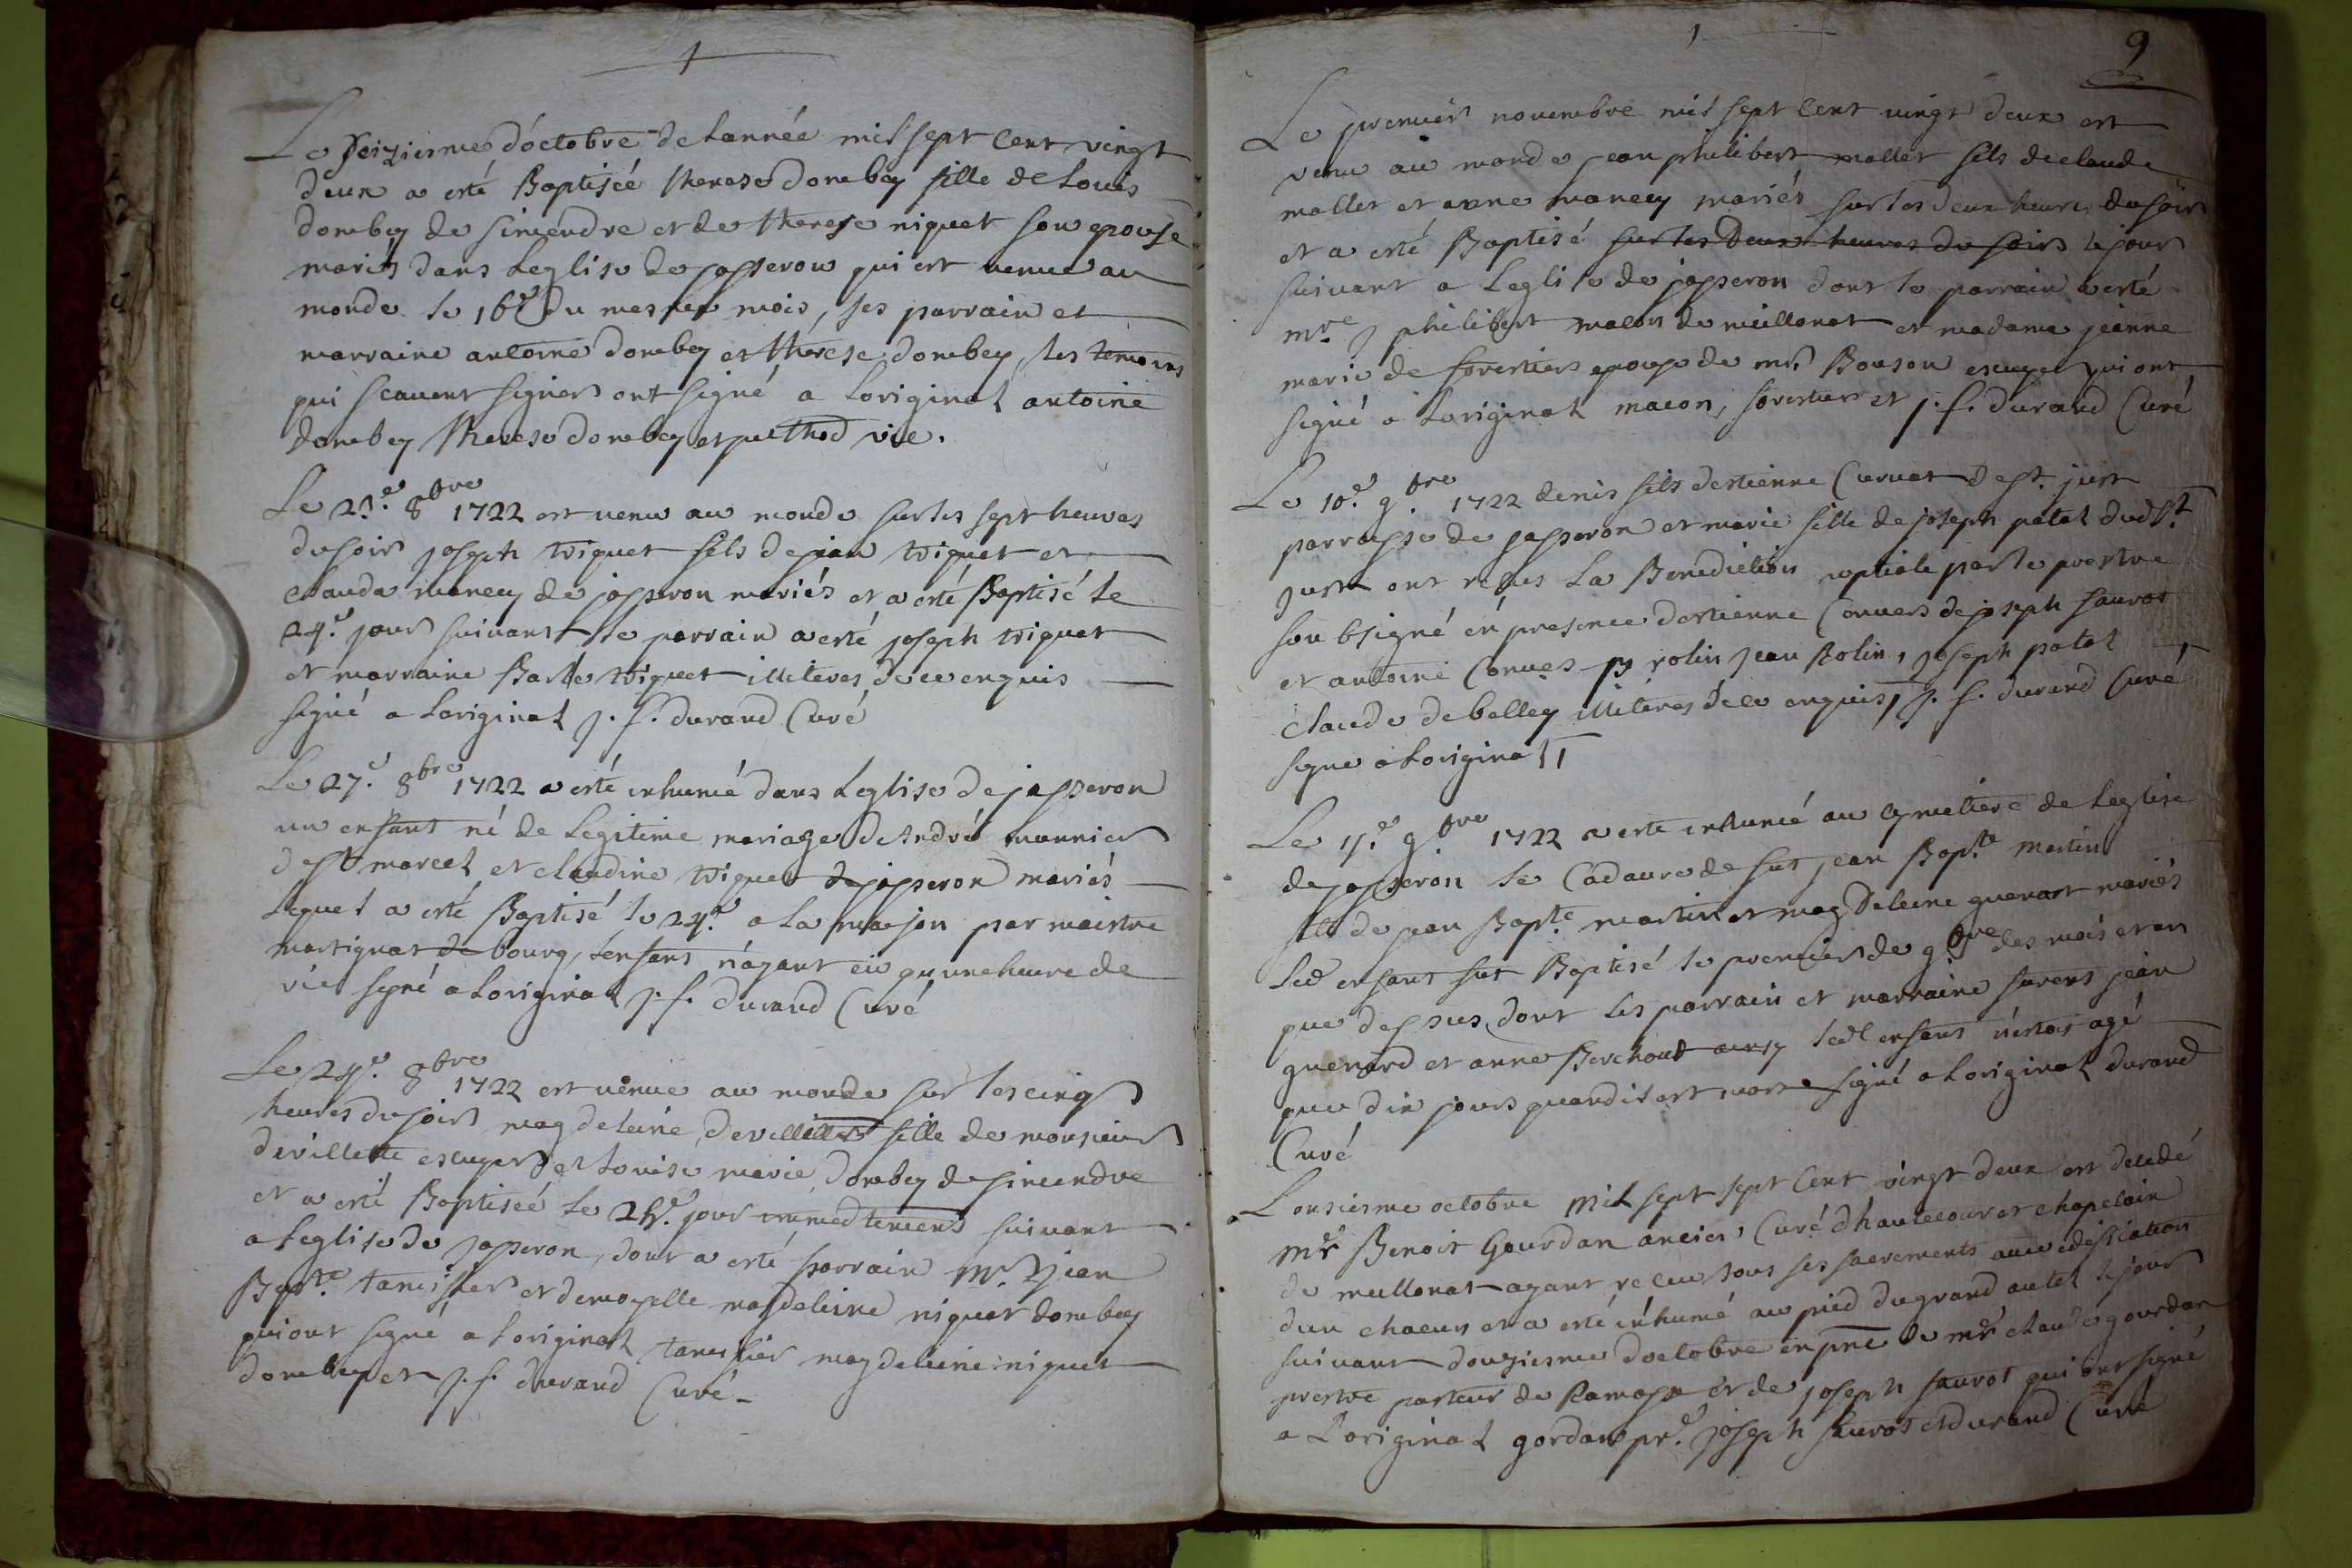 Le seiziesme d'octobre de Lannée mil sept cent vingt
deux a esté Baptiséé therese dombey fille de Louis
dombey de simendre et de therese niquet son epouse
mariés dans Leglise de jasseron qui est venue au
monde le 16e du mesme mois, ses parrain et
marraine antoine dombey et therese dombey, les temoins
qui scavent signer ont signé a Loriginal antoine
dombey therese dombey et puthod vic.
Le 23.e 8bre 1722 est venu au monde sur les sept heures
du soir joseph triquet fils de jean triquet et
claude maney de jasseron mariés et a esté Baptisé le
24.e jour suivant le parrain a esté joseph triquet
et marraine Barbe triquet illiteres de ce enquis
signé a Loriginal j. f. durand Curé
Le 27.e 8bre 1722 a esté inhumé dans Leglise de jasseron
un enfant né de Legitime mariage de André monnier
de st marcel et claudine triquet de jasseron mariés
lequel a esté Baptisé le 24.e a la maison par maistre
martignat de bourg, lenfant n'ayant eü qu'une heure de
vie signé a Loriginal j. f. durand Curé
Le 24.e 8bre 1722 est vènue au monde sur les cinq
heures du soir magdeleine devillette fille de monsieur
devillette escuyer et Louise marie dombey de simendre
et a esté Baptiséé le 25.e jour immedtement suivant
a Leglise de jasseron, dont a esté parrain Mr. jean
Bapte. tamisier et demoyselle magdeleine niquet dombey
qui ont signé a Loriginal tamisier magdeleine niquet
dombey et j. f. durand Curé
9
Le premier novembre mil sept cent vingt deux est
venu au monde jean philibert mallet fils de claude
mallet et anne maney mariés sur les deux heures du soir
et a esté Baptisé sur les Deux heures du soir le jour
suivant a Leglise de jasseron dont le parrain a esté
mre j philibert macon de meillonat et madame jeanne
marie de forestier epouse de mr. Bouson escuyer qui ont
signé a Loriginal macon, forestier et j. f. durand Curé
Le 10.e 9.bre 1722 denis fils destienne Curvat de st. just
parroisse de jasseron et marie fille de joseph patel dud st.
just ont reçus La Benediction nuptiale par le prestre
soubsigné én presence destienne Convers de joseph sauvat
et antoine Convers rolin jean Rolin, joseph patel
claude debelley illiteres de ce enquis, j. f. durand Curé
signe a Loriginal
Le 11.e 9.bre 1722 a esté inhumé au cymetiere de Leglise
de jasseron le Cadavre de fut jean Bapte. martin
fils de jean Bapte. martin et magdeleine guenart mariés
led enfant fut Baptisé le premier de 9bre des mois et an
que dessus, dont les parrain et marraine furent jean
guenard et anne Berchoud ledt enfant n'estoit agé
que dix jours quand il est mort signé a Loriginal durand
Curé
Lonsiesme octobre mil sept sept Cent vingt deux est decedé
mre Benoit Gourdan ancien Curé d'hautecour et chapelain
de meillonat ayant receu tous ses sacrements avec edification
d'un chacun et a esté inhumé au pied du grand autel le jour
suivant douziesme doctobre en pnce de mre claude gourdan
prestre pasteur de Ramasse et de joseph sauvat qui ont signé
a Loriginal gordan pr.e joseph sauvat et durand Curé